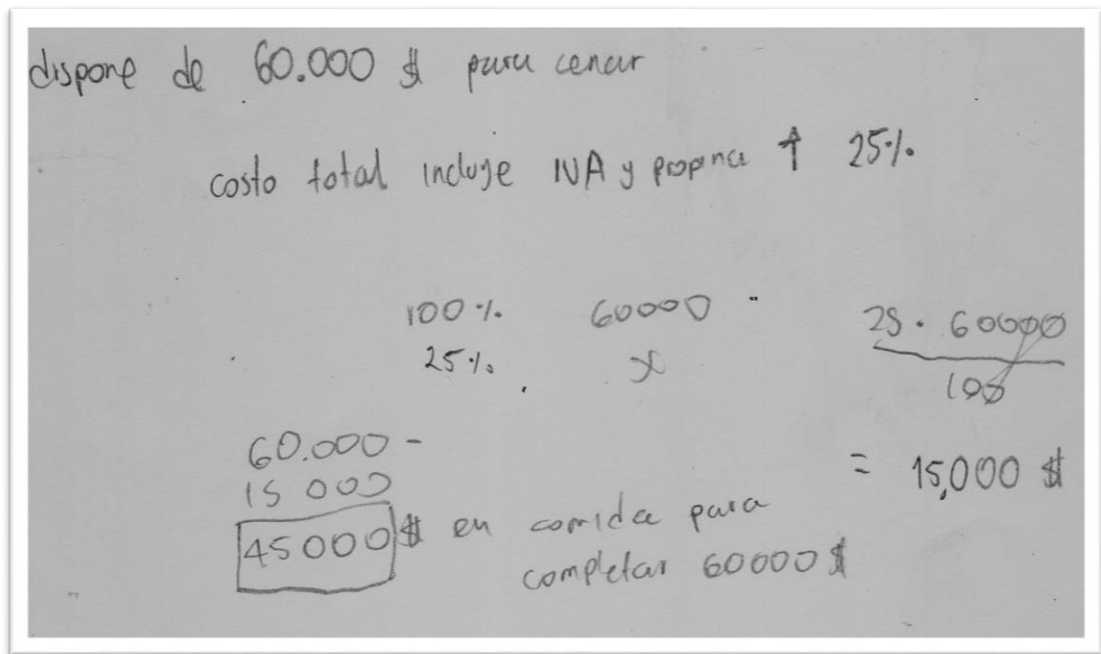 dispone de 60.000 $ para cenar
costo total incluye IVA y propina ↑ 25%.
100% 60000
25% x
25 · 60000
100
= 15,000 $
60.000 -
15 000
45000 $ en comida para
completar 60000 $